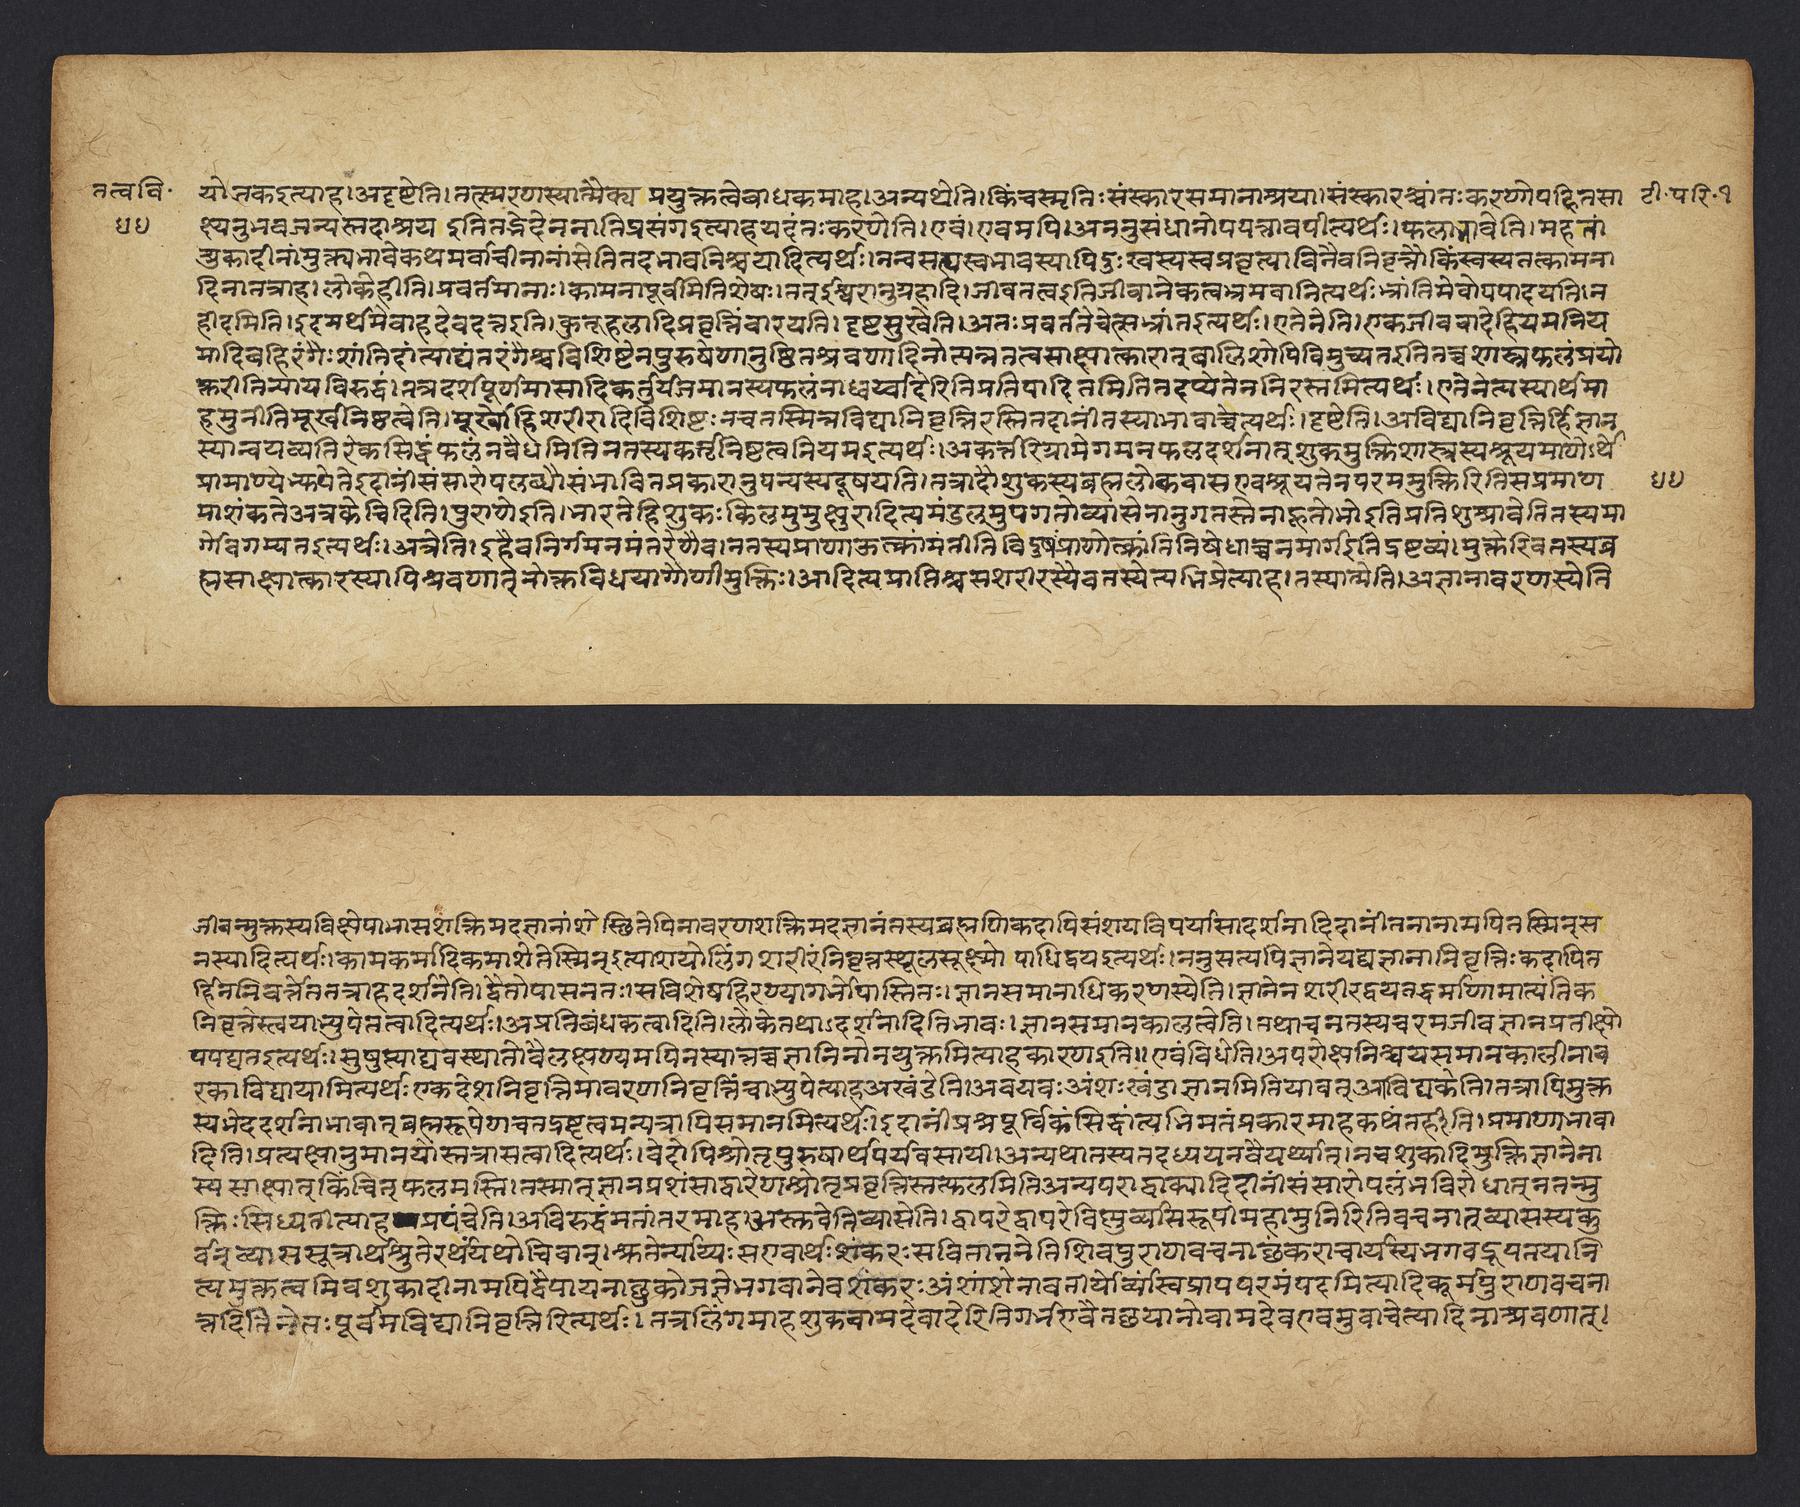 तत्ववि· योजकइत्याह।अदृष्टेति।तत्स्मरणस्यात्मैक्य प्रयुक्तत्वेबाधकमाह।अन्यथेति।किंचस्मृतिःसंस्कारसमानाश्रया।संस्कारश्चांतःकरणोपहितसा टी·परि·१
४४ क्ष्यनुभवजन्यस्तदाश्रय इतितद्भेदेननातिप्रसंगइत्याहयदंतःकरणेति।एवं।एवमपि।अननुसंधानोपपत्तावपीत्यर्थः।फलाभावेति।महतां
शुकादीनांमुक्त्यभावेकथमर्वाचीनानांसेतितदभावनिश्चयादित्यर्थः।नन्वसत्यस्वभावस्यापिदुःखस्यस्वप्रवृत्याविनैवनिवृत्तौकिंस्वस्यतत्कामना
दिनातत्राह।लोकेहीति।प्रवर्तमानाः।कामनापूर्वमितिशेषः।ततईश्वरानुग्रहादि।जीवतत्वइतिजीवानेकत्वभ्रमवानित्यर्थःभ्रांतिमेवोपपादयति।न
हीदमिति।इदमर्थमेवाहदेवदत्तइति।कुतूहलादिप्रवृत्तिंवारयति।दृष्टसुखेति।अतःप्रवर्ततेचेत्सभ्रांतइत्यर्थः।एतेनेति।एकजीववादेहियमनिय
मादिबहिरंगैःशांतिदांत्याद्यंतरंगैश्चविशिष्टेनपुरुषेणानुष्ठितश्रवणादिनोत्पन्नतत्वसाक्षात्कारात्बालिशोपिविमुच्यतइतितच्चशास्त्रफलंप्रयो
क्तरीतिन्यायविरुद्धं।तत्रदर्शपूर्णमासादिकर्तुर्यजमानस्यफलंनाध्वर्य्वादेरितिप्रतिपादितमितितदप्येतेननिरस्तमित्यर्थः।एतेनेत्यस्यार्थमा
हमुनीतिमूर्खनिष्ठत्वेति।मूर्खोहिशरीरादिविशिष्टःनचतस्मिन्नविद्यानिवृत्तिरस्तितदानींतस्याभावाच्चेत्यर्थः।दृष्टेति।अविद्यानिवृत्तिर्हिज्ञान
स्यान्वयव्यतिरेकसिद्धंफलंनवैधमितिनतस्यकर्तृनिष्टत्वनियमइत्यर्थः।अकर्त्तरियामेगमनफलदर्शनात्शुकमुक्तिशास्त्रस्यश्रूयमाणेऽर्थे
प्रामाण्येभ्युपेतेइदानींसंसारोपलब्धौसंभावितप्रकारानुपन्यस्यदूषयति।तत्रादौशुकस्यब्रह्मलोकवासएवश्रूयतेनपरममुक्तिरितिसप्रमाण ४४
माशंकतेअत्रकेचिदिति।पुराणेइति।भारतेहिशुकःकिलमुमुक्षुरादित्यमंडलमुपगतोव्यासेनानुगतस्तेनाहूतोभोइतिप्रतिशुश्रावेतितस्यमा
र्गोवगम्यतइत्यर्थः।अत्रेति।इहैवनिर्गमनमंतरेणैव।नतस्यप्राणाऊत्क्रामंतीतिविदुषांप्राणोत्क्रांतिनिषेधाच्चनमार्गइतिद्रष्टव्यं।मुक्तेरिवतस्यब्र
ह्मसाक्षात्कारस्यापिश्रवणात्नोक्तविधयागौणीमुक्तिः।आदित्यप्राप्तिश्चसशरीरस्यैवतस्येत्यभिप्रेत्याह।तस्यात्मेति।अज्ञानावरणस्येति
जीवन्मुक्तस्यविक्षेपाभासशक्तिमदज्ञानांशे स्थितेपिनावरणशक्तिमदज्ञानंतस्यब्रह्मणिकदापिसंशयविपर्यासादर्शनादिदानींतनानामपितस्मिन्स
नस्यादित्यर्थः।कामकर्मादिकमाशेतेस्मिन्इत्याशयोलिंगशरीरंनिवृत्तस्थूलसूक्ष्मो पाधिद्वयइत्यर्थः।ननुसत्यपिज्ञानेयद्यज्ञानानिवृत्तिःकदापित
र्हिननिवर्त्तेततत्राहदर्शनेति।द्वैतोपासनतः।सविशेषहिरण्यगर्भोपास्तितः।ज्ञानसमानाधिकरणस्येति।ज्ञानेनशरीरद्वयतद्धर्माणामात्यंतिक
निवृत्तेस्त्वयाभ्युपेतत्वादित्यर्थः।अप्रतिबंधकत्वादिति।लोकेतथाऽदर्शनादितिभावः।ज्ञानसमानकालत्वेति।तथाचनतस्यचरमजीवज्ञानप्रतीक्षो
पपद्यतइत्यर्थः।सुषुप्त्याद्यवस्थातोवैलक्षण्यमपिनस्यात्तच्चज्ञानिनोनयुक्तमित्याहकारणइति॥एवंविधेति।अपरोक्षनिश्चयसमानकालीनाव
रकाविद्यायामित्यर्थःएकदेशनिवृत्तिमावरणनिवृत्तिंचाभ्युपेत्याहअखंडेति।अवयवःअंशःखंडाज्ञानमितियावत्आविद्यकेति।तत्रापिमुक्त
स्यभेददर्शनाभावात्ब्रह्मरूपेणचतद्रष्टृत्वमन्यत्रापिसमानमित्यर्थः।इदानींप्रश्नपूर्विकंसिद्धांत्यभिमतंप्रकारमाहकथंतर्हीति।प्रमाणाभावा
दिति।प्रत्यक्षानुमानयोस्तत्रासत्वादित्यर्थः।वेदोपिश्रोतृपुरुषार्थपर्यवसायी।अन्यथातस्यतदध्ययनवैयर्थ्यात्।नचशुकादिमुक्तिज्ञानेना
स्यसाक्षात्किंचित्फलमस्ति।तस्मात्ज्ञानप्रशंसाद्वारेणश्रोतृप्रवृत्तिस्तत्फलमितिअन्यपराद्वाक्यादिदानींसंसारोपलंभविरोधात्नतन्मु
क्तिःसिध्यतीत्याहप्रपंचेति।अविरुद्धंमतांतरमाह।अस्तुवेतिव्यासेति।द्वापरेद्वापरेविष्णुर्व्यासरूपीमहामुनिरितिवचनात्व्यासस्यकु
र्वन्व्याससूत्रार्थश्रुतेरर्थंयथोचिवान्।श्रुतेर्न्याय्यःसएवार्थःशंकरःसवितानननेतिशिवपुराणवचनाछंकराचार्यस्यभगवद्रूपतयानि
त्यमुक्तत्वमिवशुकादीनामपिद्वैपायनाछुकोजज्ञेभगवानेवशंकरःअंशांशेनावतीर्योर्व्यांस्वंप्रापपरमंपदमित्यादिकूर्मपुराणवचना
त्तदितिनेतःपूर्वमविद्यानिवृत्तिरित्यर्थः।तत्रलिंगमाहशुकवामदेवादेरितिगर्भएवैतछयानोवामदेवएवमुवाचेत्यादिनाश्रवणात्।